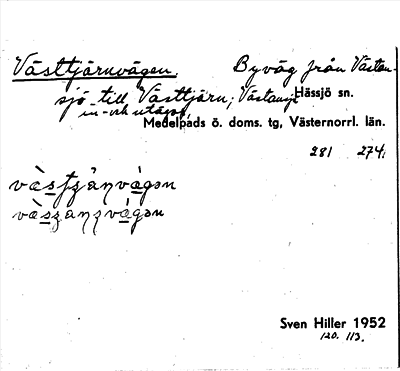 Västtjärnvägen. Byväg från Västan-
sjö till Västtjärn; Västansjö Hässjö sn.
in- och utägor
Medelpads ö. doms. tg, Västernorrl. län.
281 274.
Sven Hiller 1952
120. 113.